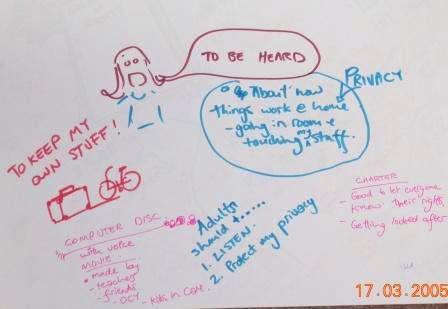 TO BE HEARD
PRIVACY
About how
things work @ home
- going in room &
touching my stuff.
TO KEEP MY
OWN STUFF!
COMPUTER DISC
with voice
MOVIE
• made by
teachers
- friends
- OCY - kids in care.
Adults
should t......
1. LISTEN.
2. Protect my privacy
CHARTER
- Good to let everyone
know their rights
- Getting looked after
17.03.2005